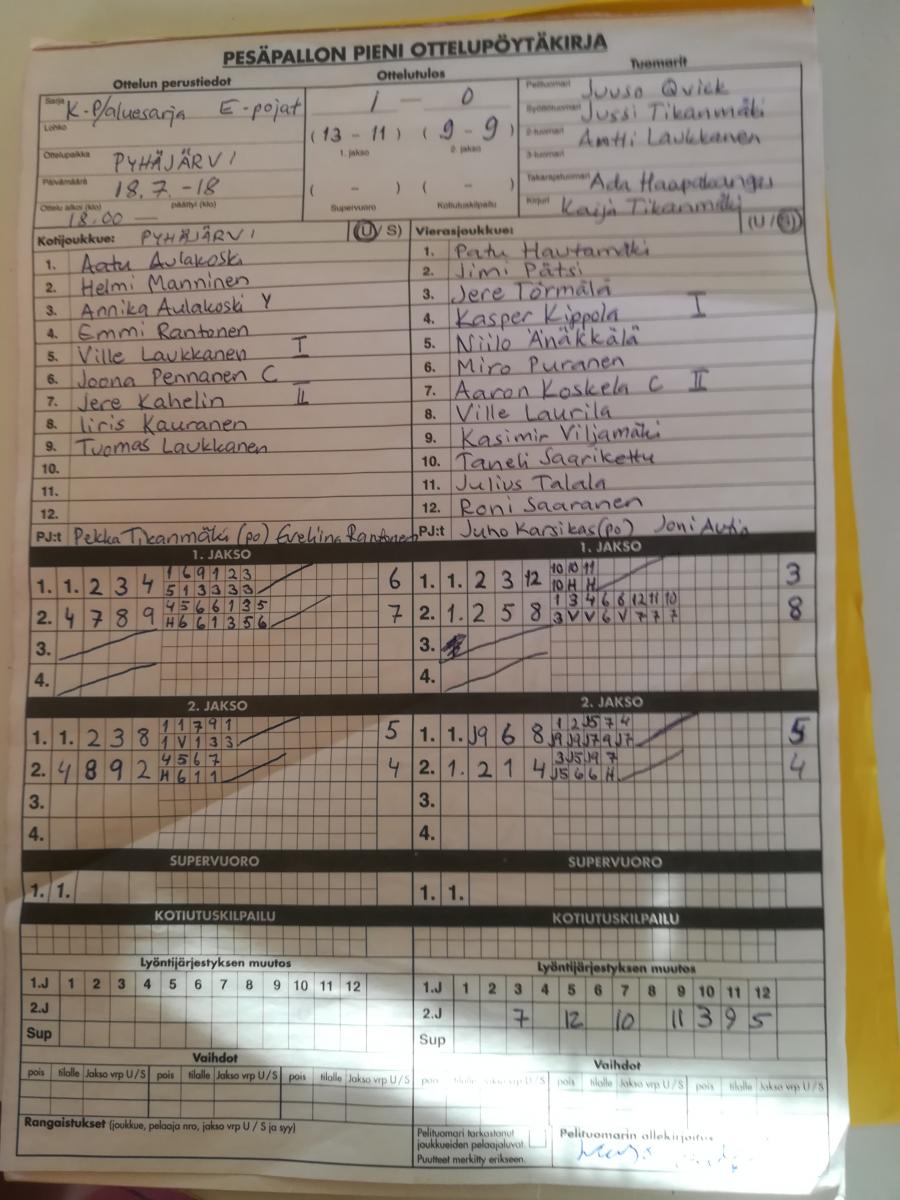 PESÄPALLON PIENI OTTELUPÖYTÄKIRJA
Ottelun perustiedot
Ottelutulos
Tuomarit
Sarja K-P/aluesarja E-pojat
Lohko
Ottelupaikka PYHÄJÄRVI
Päivämäärä 18.7.-18
Ottelu alkoi (klo) päättyi (klo)
18.00 —
1 — 0
(13 - 11) (9 - 9)
1. jakso 2. jakso
( - ) ( - )
Supervuoro Kotiutuskilpailu
Pelituomari Juuso Qvick
Syöttötuomari Jussi Tikanmäki
2-tuomari Antti Laukkanen
3-tuomari
Takarajatuomari Ada Haapakangas
Kirjuri Kaija Tikanmäki
Kotijoukkue: PYHÄJÄRVI (U/S)
1. Aatu Aulakoski
2. Helmi Manninen
3. Annika Aulakoski Y
4. Emmi Rantonen
5. Ville Laukkanen I
6. Joona Pennanen C
7. Jere Kahelin II
8. Iiris Kauranen
9. Tuomas Laukkanen
10.
11.
12.
PJ:t Pekka Tikanmäki (po) Eveliina Rantonen
Vierasjoukkue: (U/S)
1. Patu Hautamäki
2. Jimi Pätsi
3. Jere Törmälä
4. Kasper Kippola I
5. Niilo Änäkkälä
6. Miro Puranen
7. Aaron Koskela C II
8. Ville Laurila
9. Kasimir Viljamäki
10. Taneli Saarikettu
11. Julius Talala
12. Roni Saaranen
PJ:t Juho Karsikas (po) Joni Autio
1. JAKSO
1. 1. 2 3 4 1 6 9 1 2 3 6
5 1 3 3 3 3
2. 4 7 8 9 4 5 6 6 1 3 5 7
H 6 6 1 3 5 6
3.
4.
1. JAKSO
1. 1. 2 3 12 10 10 11 3
10 H H
2. 1. 2 5 8 1 3 4 6 6 12 11 10 8
3 V V 6 V 7 7 7
3.
4.
2. JAKSO
1. 1. 2 3 8 1 1 7 9 1 5
1 V 1 3 3
2. 4 8 9 2 4 5 6 7 4
H 6 1 1
3.
4.
2. JAKSO
1. 1. J9 6 8 1 2 J5 7 4 5
J9 J9 J7 9 J7
2. 1. 2 1 4 3 J5 J9 7 4
J5 6 6 H
3.
4.
SUPERVUORO
1. 1.
SUPERVUORO
1. 1.
KOTIUTUSKILPAILU
KOTIUTUSKILPAILU
Lyöntijärjestyksen muutos
1.J 1 2 3 4 5 6 7 8 9 10 11 12
2.J
Sup
Lyöntijärjestyksen muutos
1.J 1 2 3 4 5 6 7 8 9 10 11 12
2.J 7 12 10 11 3 9 5
Sup
Vaihdot
pois tilalle Jakso vrp U/S pois tilalle Jakso vrp U/S pois tilalle Jakso vrp U/S
Vaihdot
pois tilalle Jakso vrp U/S pois tilalle Jakso vrp U/S pois tilalle Jakso vrp U/S
Rangaistukset (joukkue, pelaaja nro, jakso vrp U / S ja syy)
Pelituomari tarkastanut
joukkueiden pelaajaluvat.
Puutteet merkitty erikseen.
Pelituomarin allekirjoitus